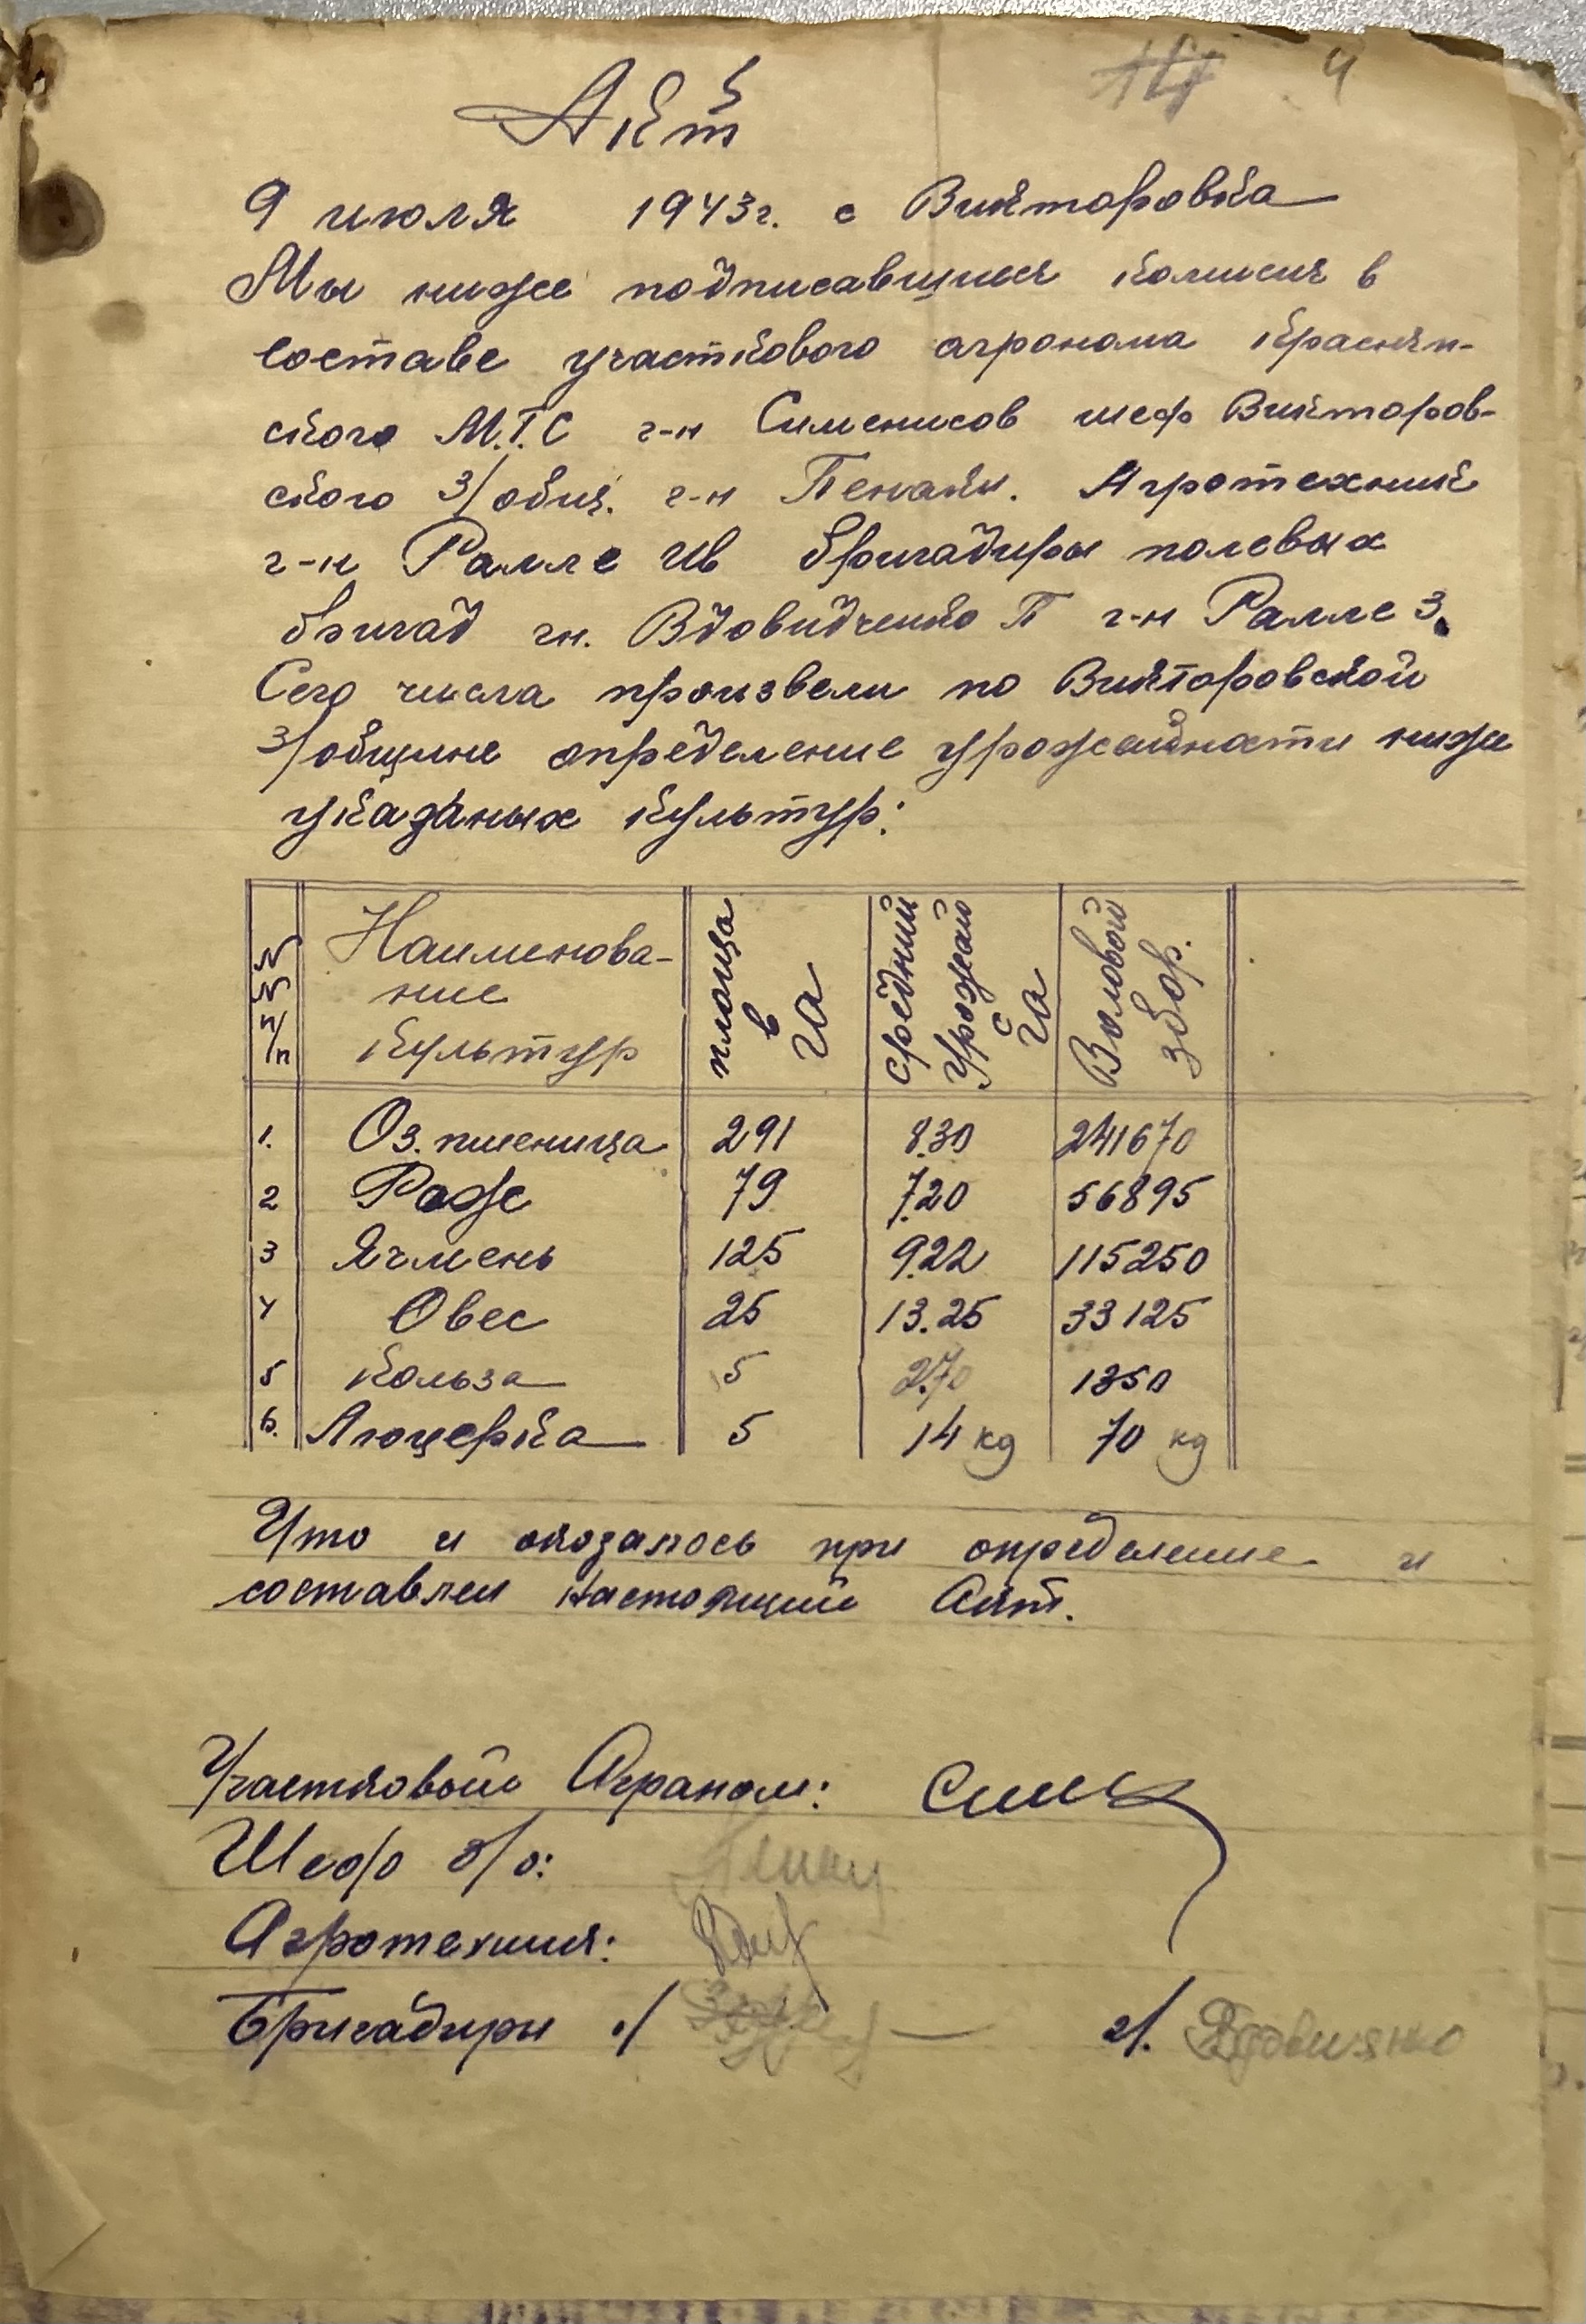 4
Акт
9 июля 1943г. с Викторовка
Мы ниже подписавшиеся комисия в
составе участкового агронома Краснян-
ского М.Т.С г-н Сименисов шеф Викторов-
ского З/общ. г-н Пенакы. Агротехник
г-н Ралле Ив бригадиры полевых
бригад гн. Вдовидченко П г-н Ралле З.
Сего числа произвели по Викторовской
З/общине определение урожайности ниже
указаных культур:
№№ п/п Наименова-ние культур площа в га средний урожай с га Воловой збор.
1. Оз. пшеница 291 8.30 241670
2 Рожь 79 7.20 56895
3 Ячмень 125 9.22 115250
4 Овес 25 13.25 33125
5 Кольза 5 2.70 1350
6. Люцерка 5 14 kg 70 kg
Что и оказалось при определение и
составлен настоящий Акт.
Участковый Аграном:
Шеф з/о:
Агротехник:
Бригадиры 1/ 2/. Вдовиченко